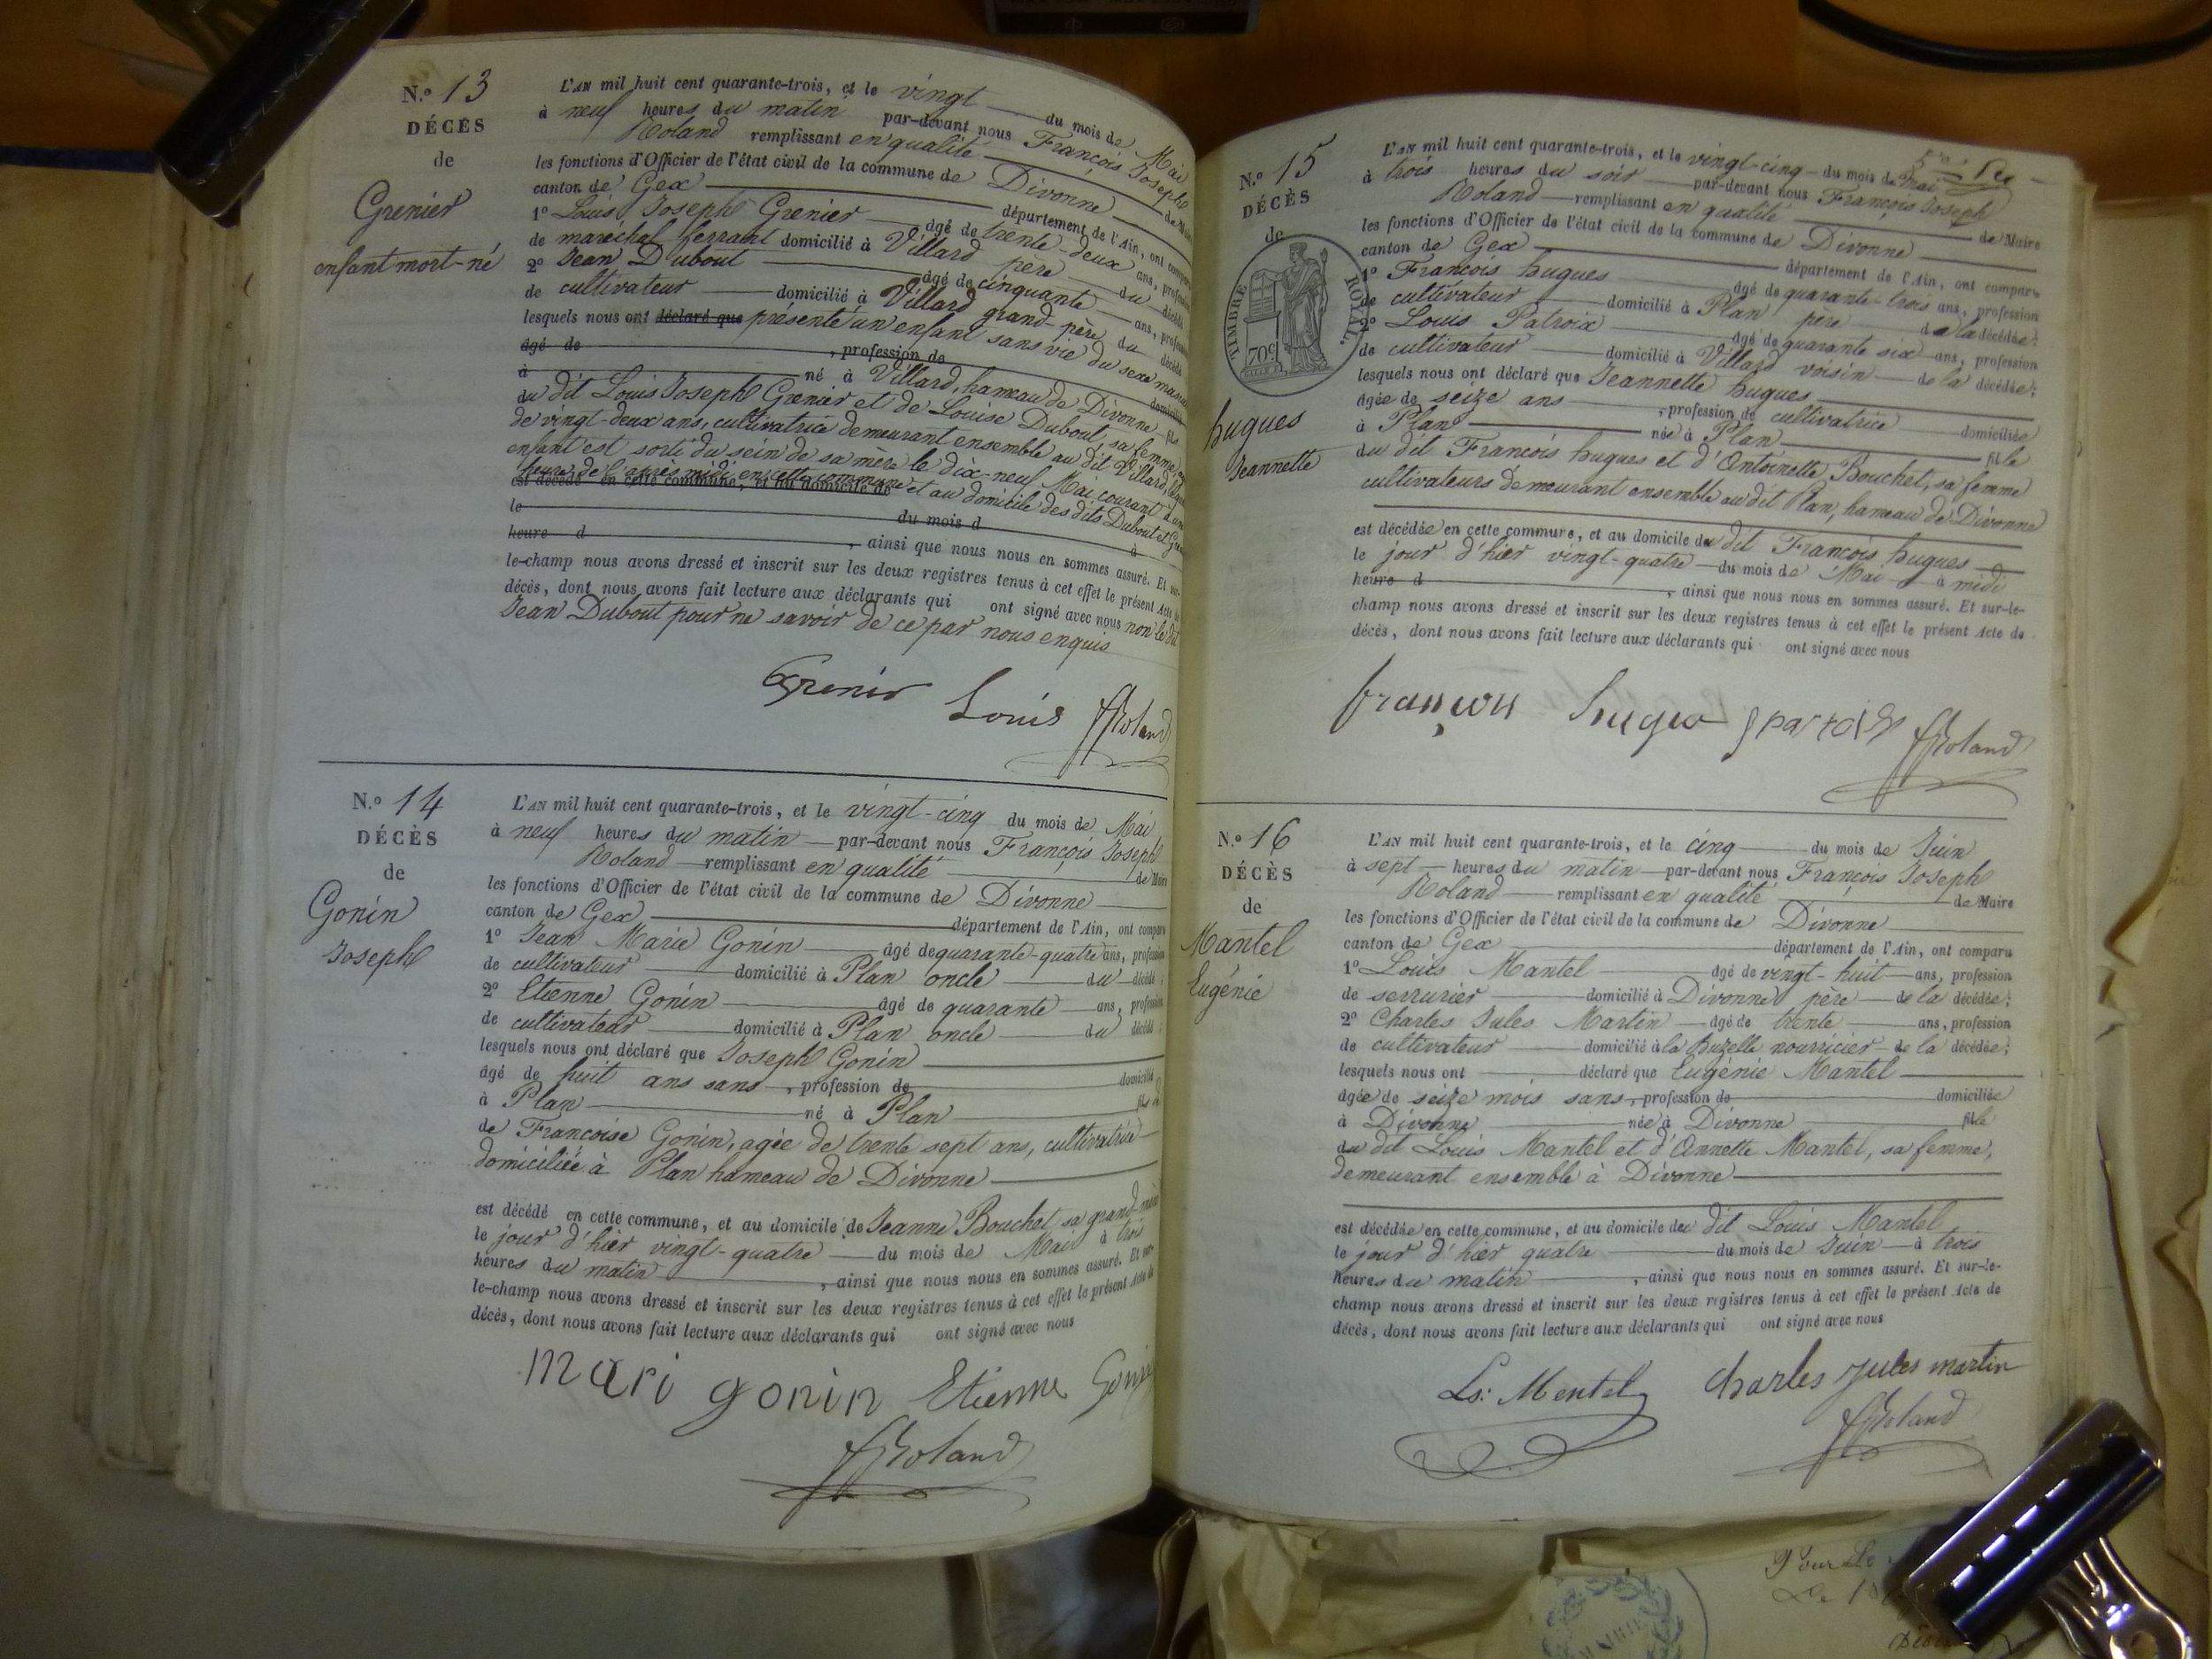 N.o 13
DÉCÈS
de
Grenier
enfant mort-né
L'AN mil huit cent quarante-trois, et le vingt du mois de Mai
à neuf heures du matin par-devant nous François Joseph
Roland remplissant en qualité de Maire
les fonctions d'Officier de l'état civil de la commune de Divonne
canton de Gex département de l'Ain, ont comparu
1o Louis Joseph Grenier âgé de trente-deux ans, profession
de maréchal ferrant domicilié à Villard père du décédé
2o Jean Dubout âgé de cinquante ans, profession
de cultivateur domicilié à Villard grand-père du décédé
lesquels nous ont déclaré que présenté un enfant sans vie du sexe
âgé de , profession de domicilié
à né à Villard, hameau de Divonne fils
du dit Louis Joseph Grenier et de Louise Dubout, sa femme
de vingt-deux ans, cultivatrice demeurant ensemble au dit Villard,
enfant est sorti du sein de sa mère le dix-neuf Mai courant à une
heure de l'après midi en cette commune et au domicile des dits Dubout et
est décédé en cette commune, et au domicile de
le du mois d à
heure d , ainsi que nous nous en sommes assuré. Et sur-
le-champ nous avons dressé et inscrit sur les deux registres tenus à cet effet le présent Acte de
décès, dont nous avons fait lecture aux déclarants qui ont signé avec nous non le dit
Jean Dubout pour ne savoir de ce par nous enquis
Grenier Louis fRoland
N.o 14
DÉCÈS
de
Gonin
Joseph
L'AN mil huit cent quarante-trois, et le vingt-cinq du mois de Mai
à neuf heures du matin par-devant nous François Joseph
Roland remplissant en qualité de Maire
les fonctions d'Officier de l'état civil de la commune de Divonne
canton de Gex département de l'Ain, ont comparu
1o Jean Marie Gonin âgé de quarante-quatre ans, profession
de cultivateur domicilié à Plan oncle du décédé;
2o Etienne Gonin âgé de quarante ans, profession
de cultivateur domicilié à Plan oncle du décédé;
lesquels nous ont déclaré que Joseph Gonin
âgé de huit ans sans, profession de domicilié
à Plan né à Plan fils
de Françoise Gonin, agée de trente sept ans, cultivatrice
domiciliée à Plan hameau de Divonne
est décédé en cette commune, et au domicile de Jeanne Bouchet, sa grand-mère
le jour d'hier vingt-quatre du mois de Mai à trois
heures du matin, ainsi que nous nous en sommes assuré. Et sur-
le-champ nous avons dressé et inscrit sur les deux registres tenus à cet effet le présent Acte de
décès, dont nous avons fait lecture aux déclarants qui ont signé avec nous
mari gonin Etienne Gonin
fRoland
N.o 15
DÉCÈS
de
TIMBRE ROYAL.
hugues
Jeannette
L'AN mil huit cent quarante-trois, et le vingt-cinq du mois de Mai
à trois heures du soir par-devant nous François Joseph
Roland remplissant en qualité de Maire
les fonctions d'Officier de l'état civil de la commune de Divonne
canton de Gex département de l'Ain, ont comparu
1o François hugues âgé de quarante-trois ans, profession
de cultivateur domicilié à Plan père de la décédée;
2o Louis Patroix âgé de quarante six ans, profession
de cultivateur domicilié à Villard voisin de la décédée;
lesquels nous ont déclaré que Jeannette hugues
âgée de seize ans, profession de cultivatrice domiciliée
à Plan née à Plan fille
du dit François hugues et d'Antoinette Bouchet, sa femme
cultivateurs demeurant ensemble au dit Plan, hameau de Divonne
est décédée en cette commune, et au domicile du dit François hugues
le jour d'hier vingt-quatre du mois de Mai à midi
heure d , ainsi que nous nous en sommes assuré. Et sur-le-
champ nous avons dressé et inscrit sur les deux registres tenus à cet effet le présent Acte de
décès, dont nous avons fait lecture aux déclarants qui ont signé avec nous
françois hugues fRoland
N.o 16
DÉCÈS
de
Mantel
Eugénie
L'AN mil huit cent quarante-trois, et le cinq du mois de Juin
à sept heures du matin par-devant nous François Joseph
Roland remplissant en qualité de Maire
les fonctions d'Officier de l'état civil de la commune de Divonne
canton de Gex département de l'Ain, ont comparu
1o Louis Mantel âgé de vingt-huit ans, profession
de serrurier domicilié à Divonne père de la décédée;
2o Charles Jules Martin âgé de trente ans, profession
de cultivateur domicilié à la huzelle nourricier de la décédée;
lesquels nous ont déclaré que Eugénie Mantel
âgée de seize mois sans, profession de domiciliée
à Divonne née à Divonne fille
du dit Louis Mantel et d'Annette Mantel, sa femme,
demeurant ensemble à Divonne
est décédée en cette commune, et au domicile du dit Louis Mantel
le jour d'hier quatre du mois de Juin à trois
heures du matin, ainsi que nous nous en sommes assuré. Et sur-le-
champ nous avons dressé et inscrit sur les deux registres tenus à cet effet le présent Acte de
décès, dont nous avons fait lecture aux déclarants qui ont signé avec nous
Ls: Mentel Charles jules martin
fRoland
Pour le